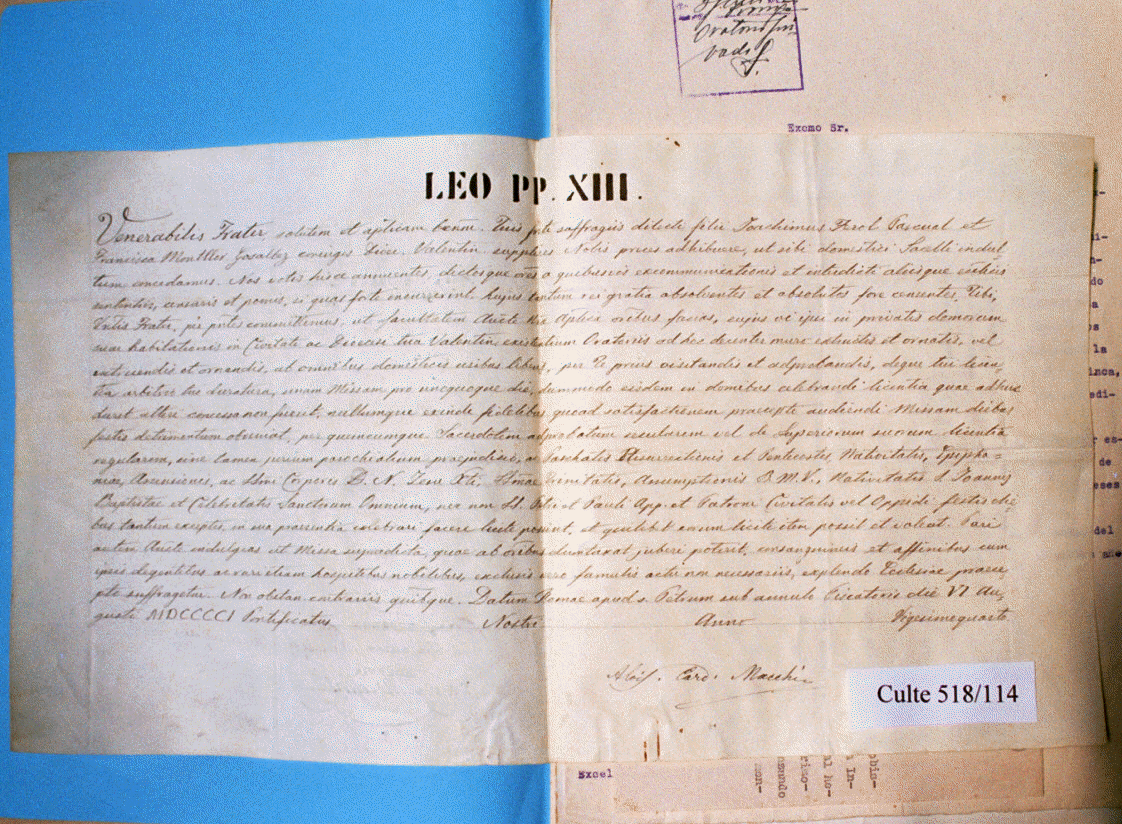 Oratorios pri
vados
Excmo Sr.
LEO PP. XIII.
Venerabilis Frater salutem et aplicam benem. Tuis suffragiis dilecti filii Joachimus Pascual et
Francisca Gosalbez coniuges Dioec. Valentin. supplices Nobis preces adhibuere, ut sibi domestici Sacelli indul
tum concedamus. Nos votis hisce annuentes, dictosque ores a quibusvis excommunicationis et interdicti aliisque eccliis
sententiis, censuris et poenis, si quas forte incurrerint hujus tantum rei gratia absolventes et absolutos fore censentes, Tibi,
Vnlis Frater, ps pntes committimus, ut facultatem Aucte Nra Aplica oribus facias, cujus vi ipsi in privatis domorum
suae habitationis in Civitate ac Dioecesi tua Valentin. existentium Oratoriis ad hoc decenter muro extructis et ornatis, vel
extruendis et ornandis, ab omnibus domesticis usibus liberis, per Te prius visitandis et adprobandis, deque tui licen
tia arbitrio tuo duratura, unam Missam pro unoquoque die, dummodo eisdem in domibus celebrandi licentia quae adhuc
duret alteri concessa non fuerit, nullumque exinde fidelibus quoad satisfactionem praecepti audiendi Missam diebus
festis detrimentum obveniat, per quemcumque Sacerdotem adprobatum secularem vel de Superiorum suorum licentia
regularem, sine tamen jurium parochialium prejudicio, ac Paschatis Resurrectionis et Pentecostes, Nativitatis, Epipha=
niae, Ascensionis, ac Ssmi Corporis D. N. Jesu Xti, Ssmae Trinitatis, Assumptionis B.M.V., Nativitatis S. Joannis
Baptistae et Celebritatis Sanctorum Omnium, nec non SS. Petri et Pauli App. et Patroni Civitatis vel Oppidi festis die
bus tantum exceptis, in sua praesentia celebrari facere licite possint, et quilibet eorum licite item possit et valeat. Pari
autem Aucte indulgeas ut Missa supradicta, quae ab oribus dumtaxat juberi poterit, consanguineis et affinibus cum
ipsis degentibus ac variatiam hospitibus nobilibus, exclusis vero famulis actu non necessariis, explendo Ecclesiae praece
pto suffragetur. Non obstan. contrariis quibque. Datum Romae apud S. Petrum sub annulo Piscatoris die VI Au,
gusti MDCCCCI Pontificatus Nostri Anno Vigesimoquarto
Alois. Card. Macchi
Culte 518/114
Excel